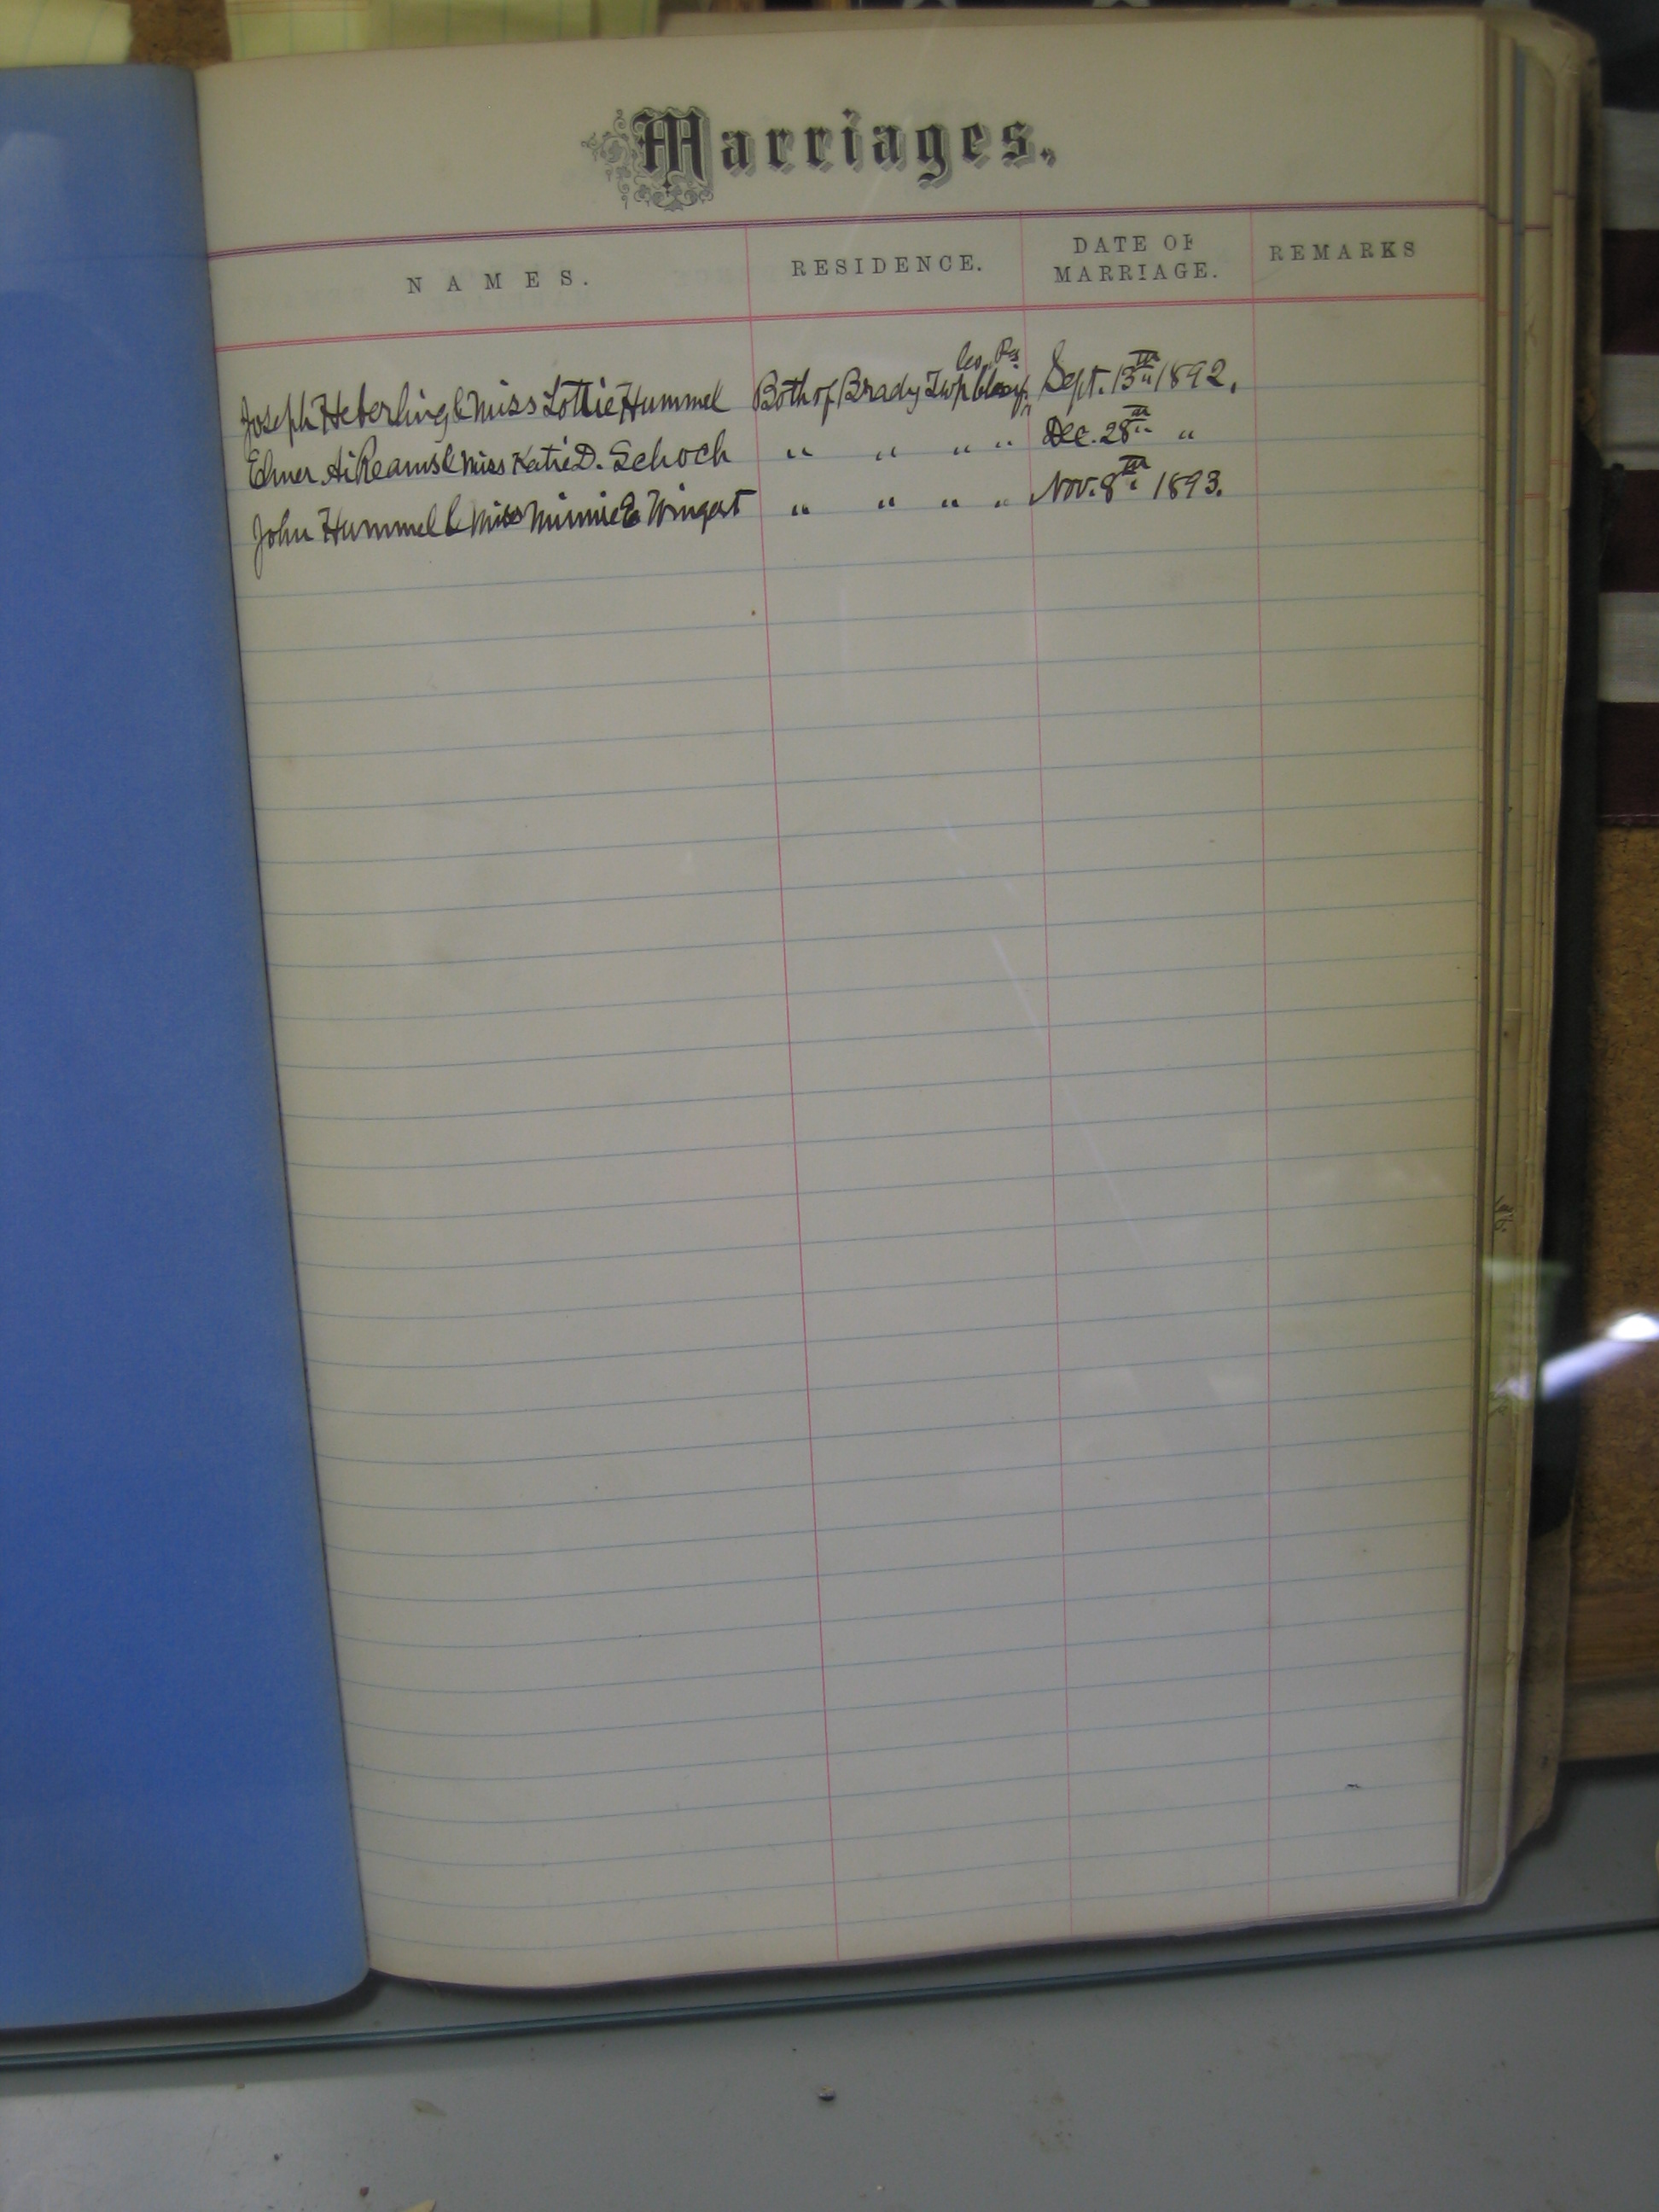 Marriages.
NAMES. RESIDENCE. DATE OF MARRIAGE. REMARKS
Co. Pa
Joseph Heberling & Miss Lottie Hummel Both of Brady Twp Sept. 13th 1892.
Elmer A. Reams & Miss Katie D. Schoch " " " " Dec. 28th "
John Hummel & Miss Minnie E Wingert " " " " Nov. 8th 1893.